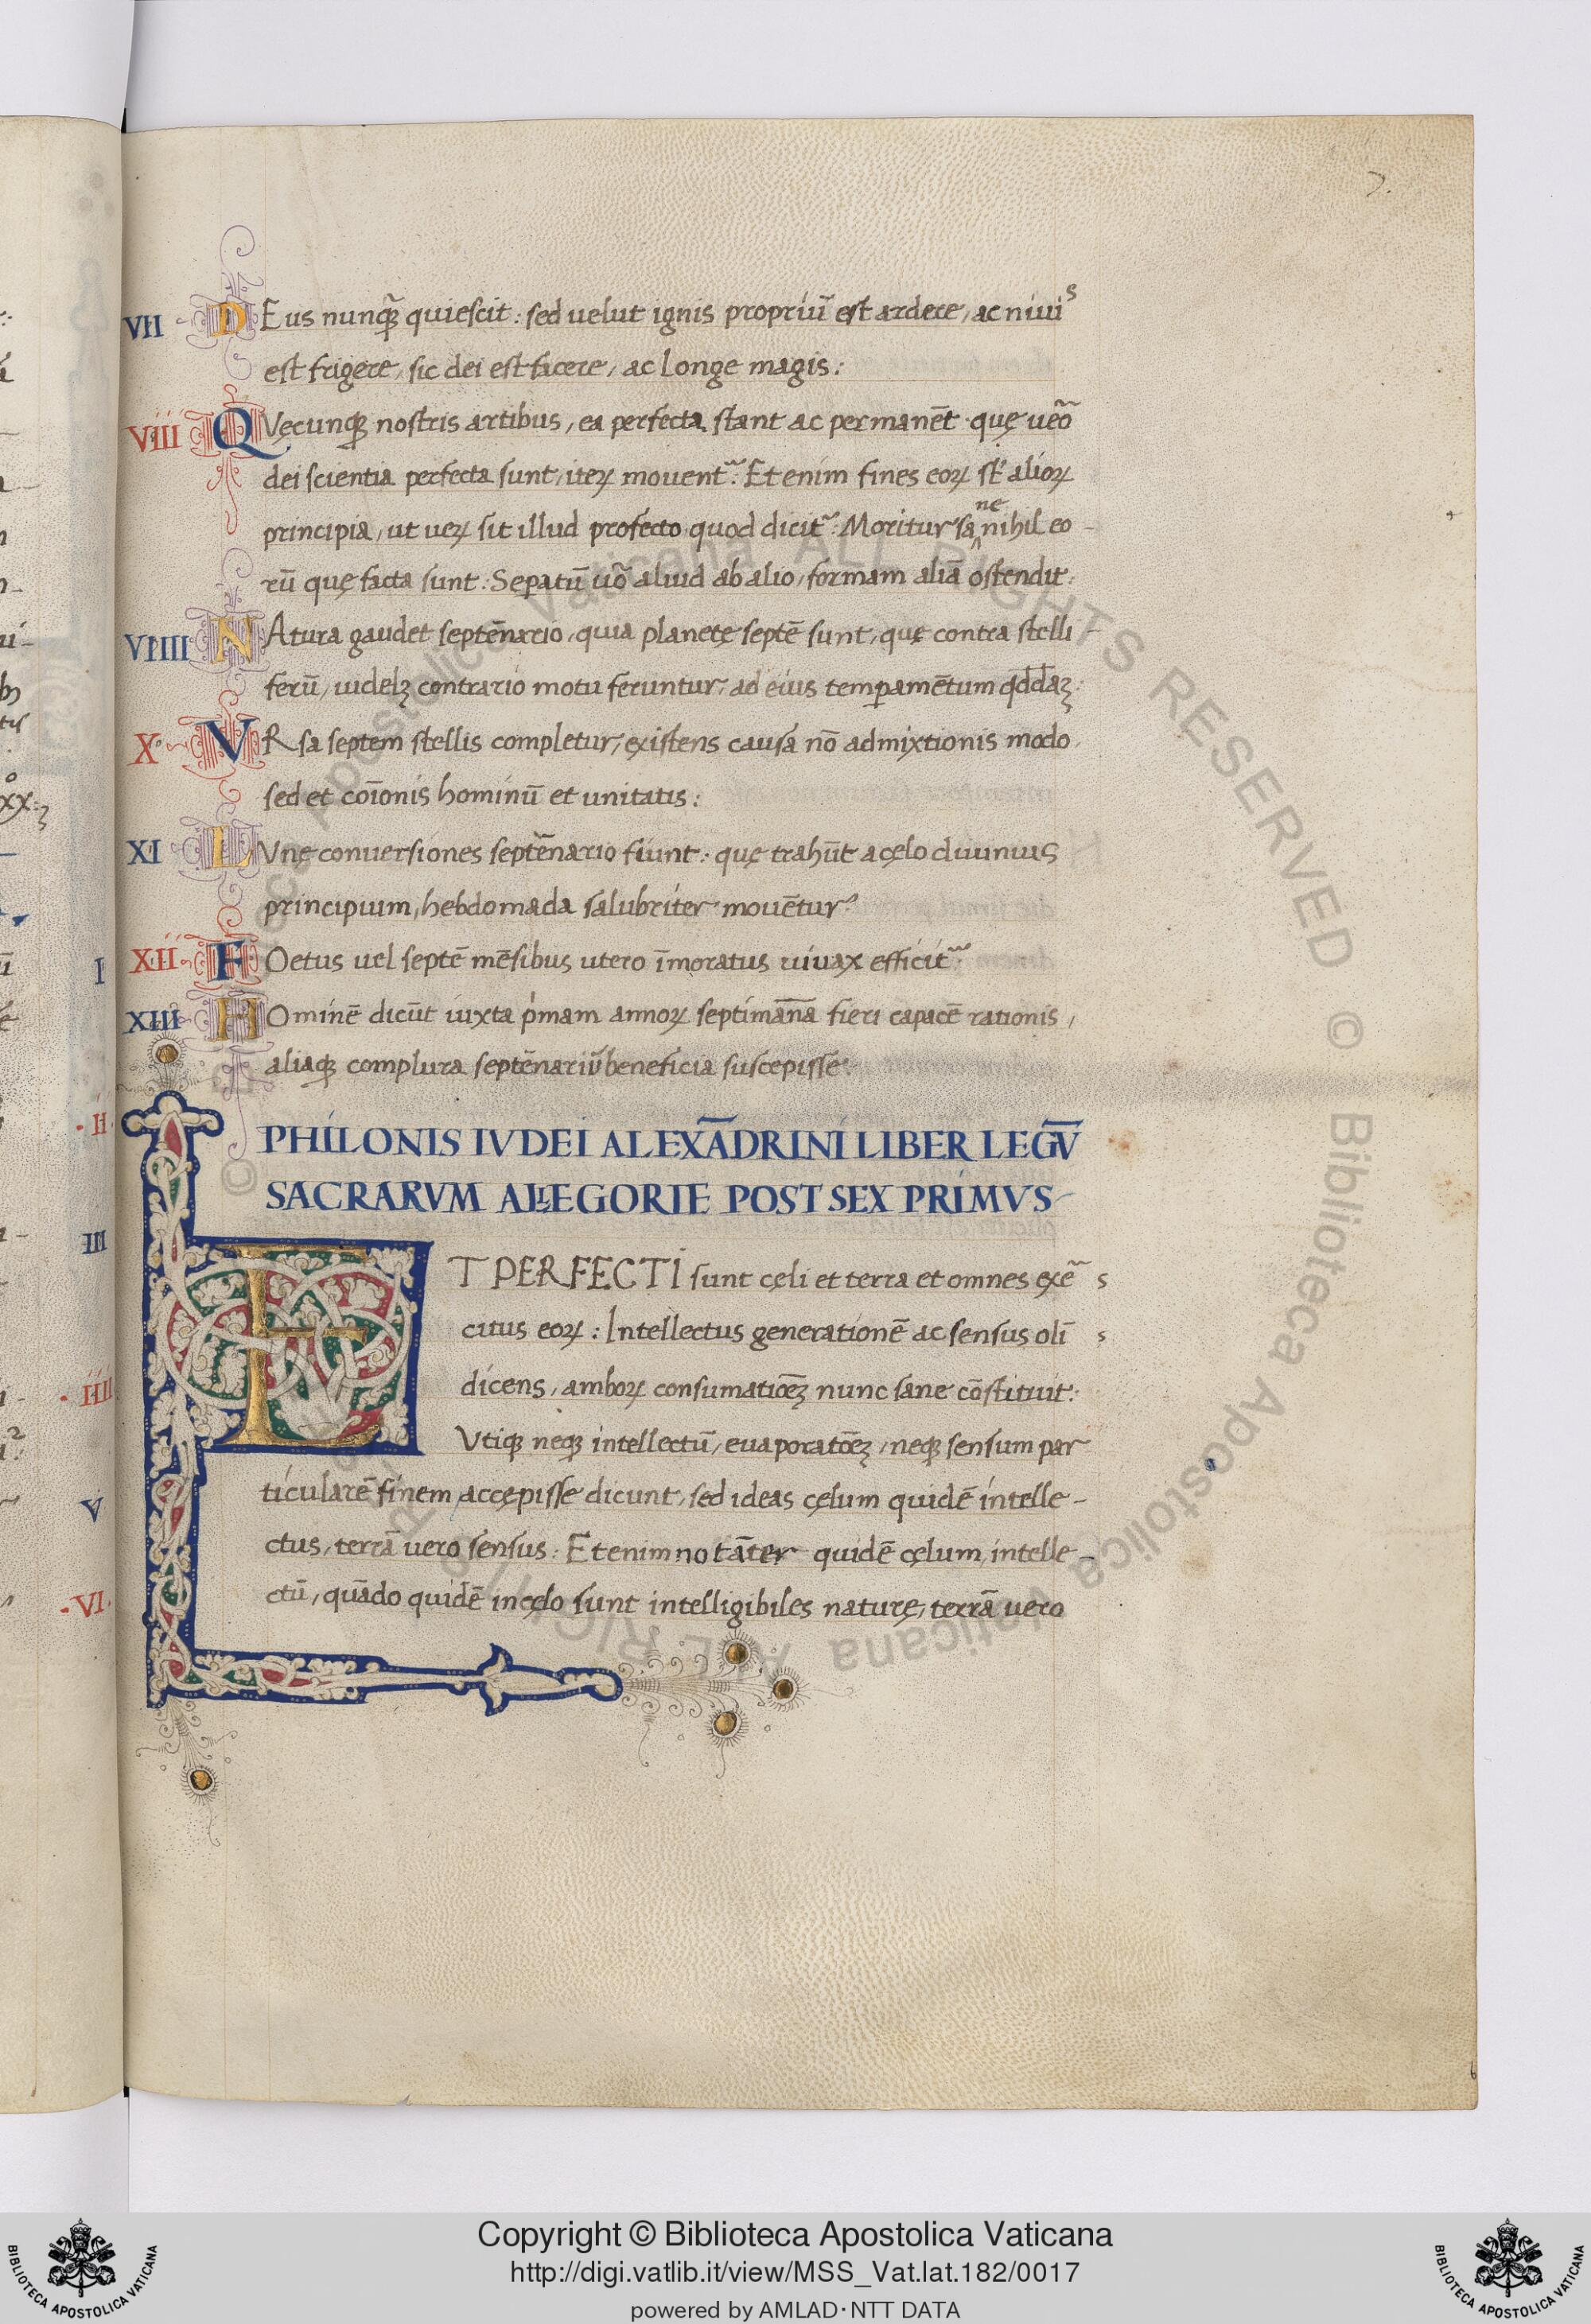 7.
VII DEus nunqȝ̃ quiescit: sed uelut ignis propriū est ardere, ac niuis
est frigere, sic dei est facere, ac longe magis:
VIII QVęcunqȝ nostris artibus, ea perfecta stant ac permanēt quę uēo
dei scientia perfecta sunt, iteꝝ mouent᷑. Etenim fines eoꝝ st̄ alioꝝ
principia, ut ueꝝ sit illud profecto quod dicit᷑: Moritur sane nihil eo-
rū quę facta sunt: Sepatū uō aliud ab alio, formam aliā ostendit:
VIIII NAtura gaudet septēnario, quia planetę septē sunt, quę contra stelli-
ferū, uidelȝ contrario motu feruntur, ad eius temperamētum
X VRsa septem stellis completur, existens causa nō admixtionis modo
sed et cōionis hominū et unitatis:
XI LVnę conuersiones septēnario fiunt: quę trahūt a cęlo diuinius
principium, hebdomada salubriter mouētur:
XII FOetus uel septē mēsibus utero īmoratus uiuax efficit᷑
XIII HOminē dicūt iuxta pͥmam annoꝝ septimānā fieri capacē rationis,
aliaqȝ complura septēnariū beneficia suscepisse:
PHILONIS IVDEI ALEXĀDRINI LIBER LEGV̄
SACRARVM ALLEGORIE POST SEX PRIMVS
ET PERFECTI sunt cęli et terra et omnes exē s
citus eoꝝ: Intellectus generationē ac sensus olī s
dicens, amboꝝ consumatiōeȝ nunc sane cōstituit:
Vtiqȝ neqȝ intellectū, euaporatōeȝ, neqȝ sensum par
ticularē finem accępisse dicunt, sed ideas cęlum quidē intelle-
ctus, terrā uero sensus: Etenim notāter quidē cęlum, intelle-
ctū, quādo quidē in cęlo sunt intelligibiles naturę, terrā uero
I
II
III
IIII
V
VI
© Biblioteca Apostolica Vaticana ALL RIGHTS RESERVED © Biblioteca Apostolica Vaticana
Copyright © Biblioteca Apostolica Vaticana
http://digi.vatlib.it/view/MSS_Vat.lat.182/0017
powered by AMLAD·NTT DATA
BIBLIOTECA APOSTOLICA VATICANA
BIBLIOTECA APOSTOLICA VATICANA